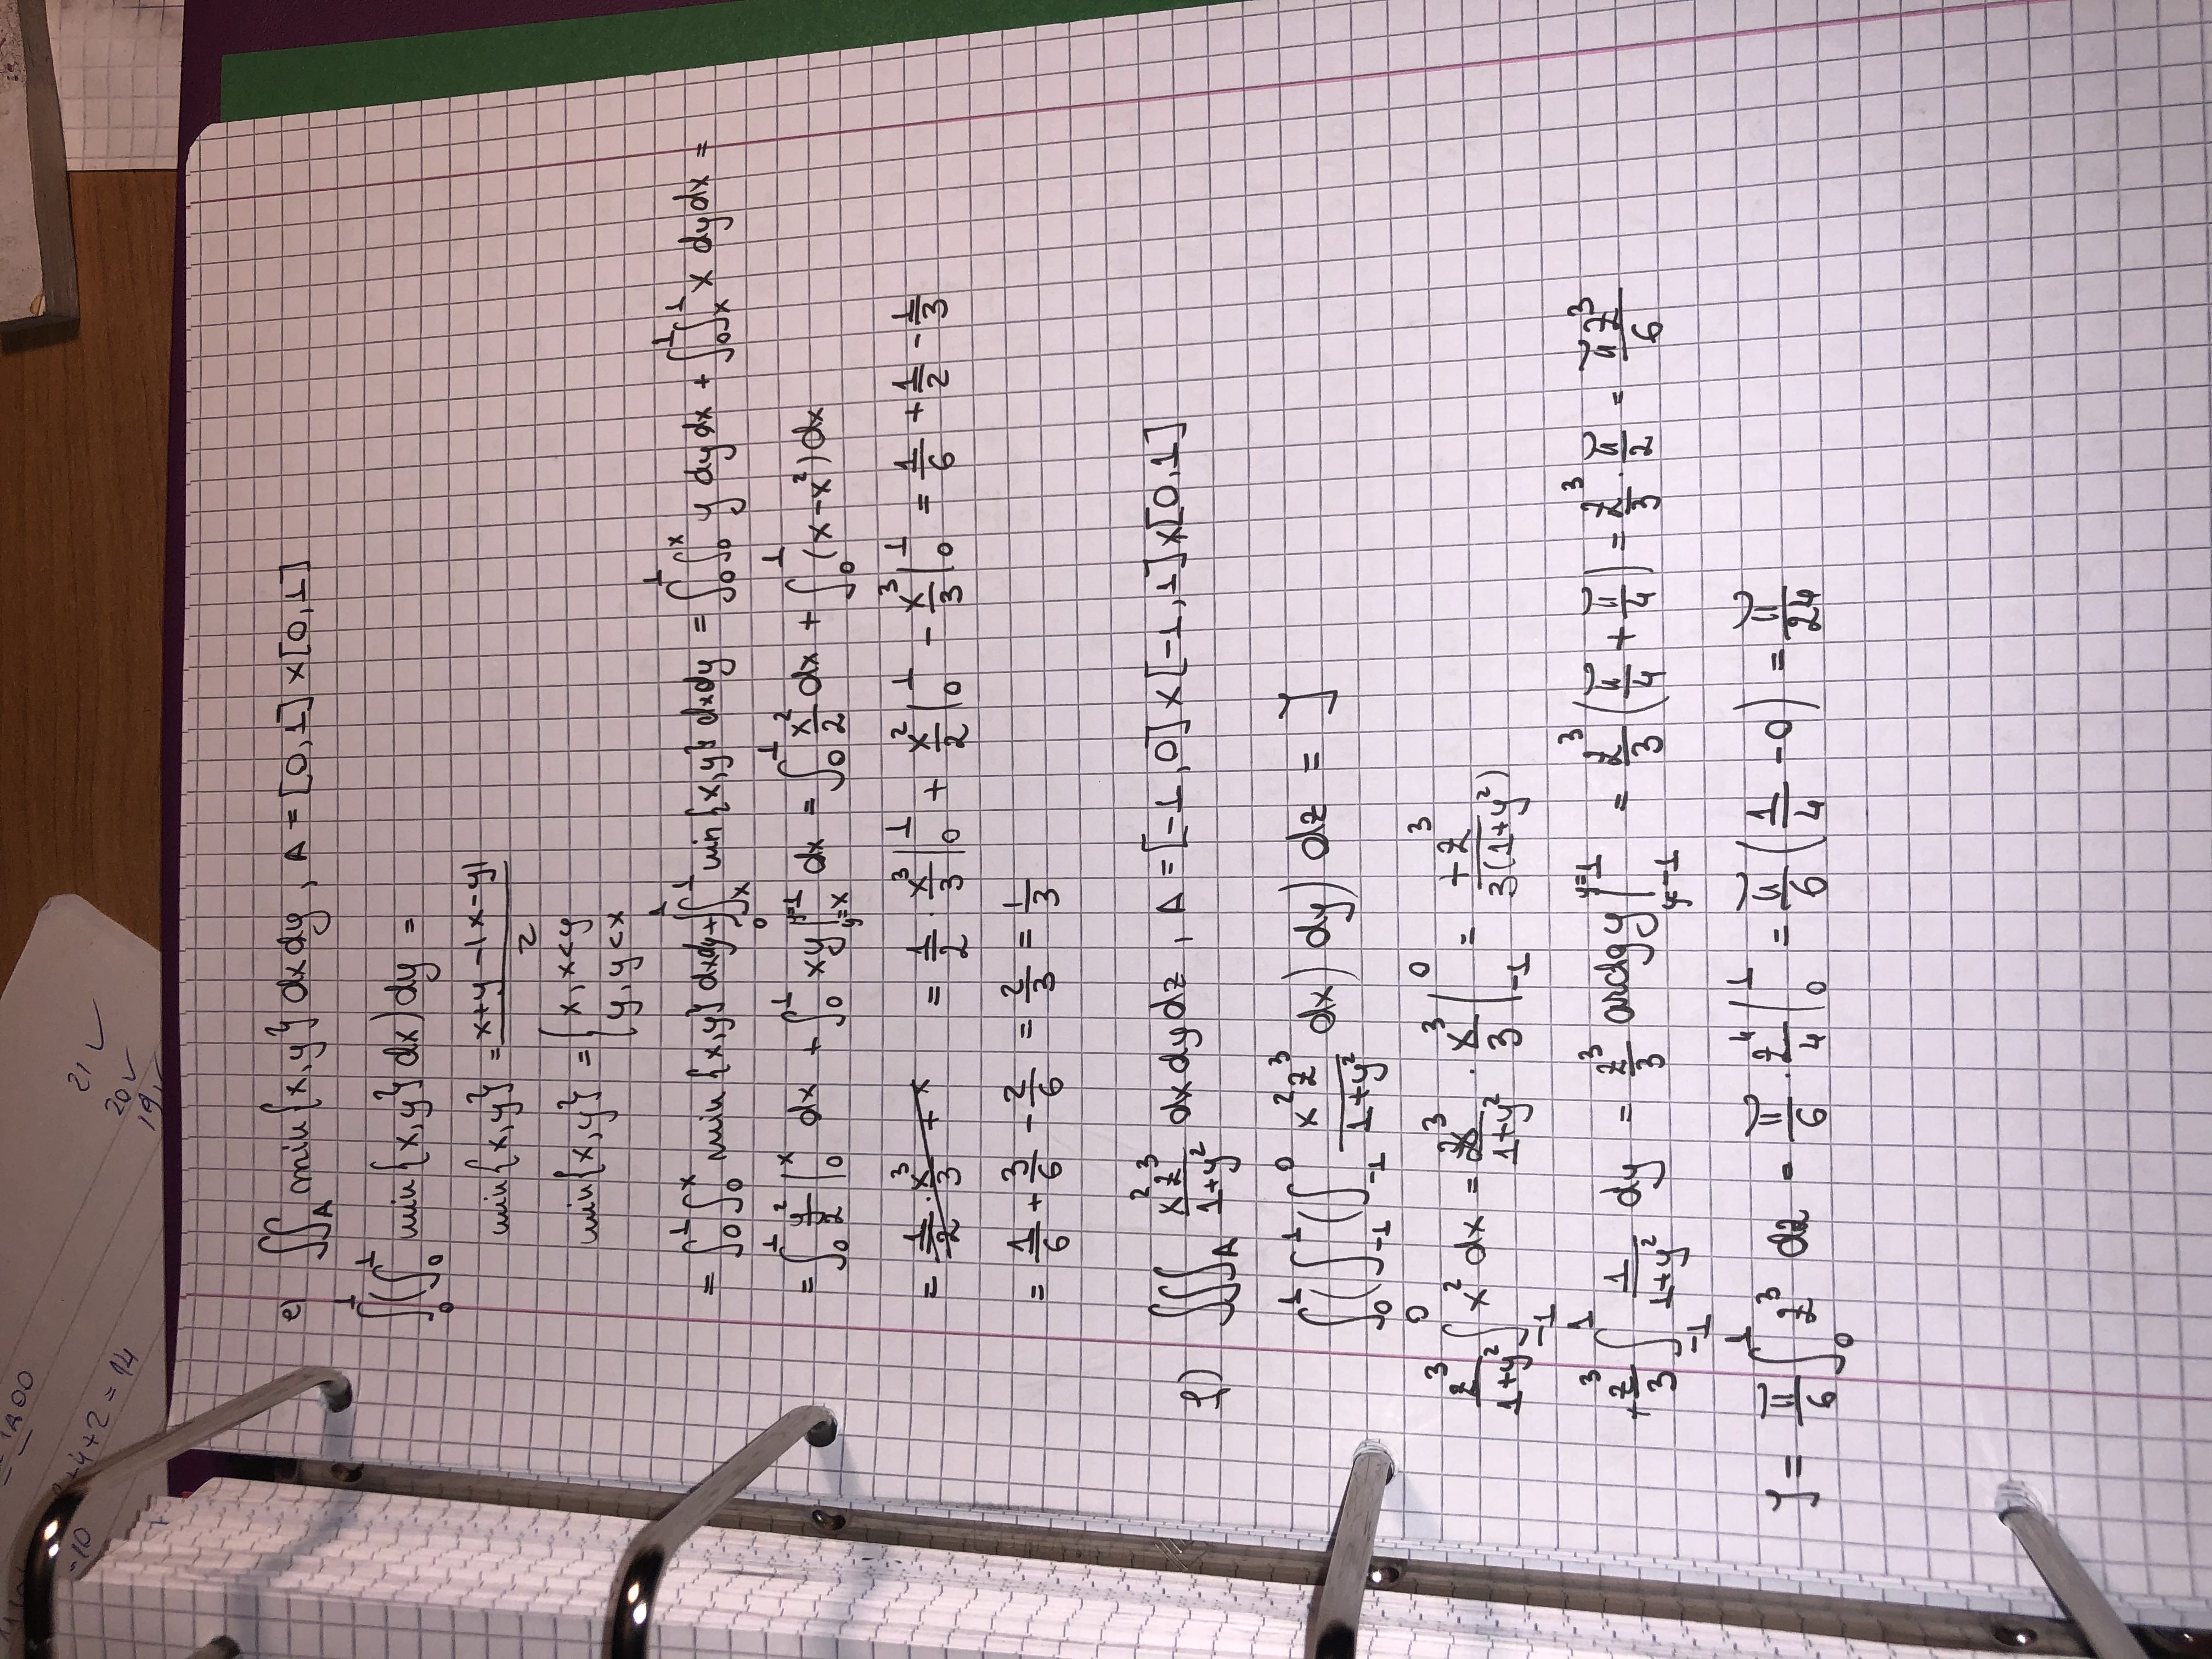 1A00
-10
+4+2=14
21 ✓
20 ✓
19 ✓
e) ∬_A min{x,y} dxdy, A = [0,1]×[0,1]
∫_0^1 (∫_0^1 min{x,y} dx) dy =
min{x,y} = (x+y-|x-y|)/2
min{x,y} = { x, x<y
y, y<x
= ∫_0^1 ∫_0^x min{x,y} dxdy + ∫_0^1 ∫_x^1 min{x,y} dxdy = ∫_0^1 ∫_0^x y dydx + ∫_0^1 ∫_x^1 x dydx =
= ∫_0^1 y²/2 |_0^x dx + ∫_0^1 xy |_{y=x}^{y=1} dx = ∫_0^1 x²/2 dx + ∫_0^1 (x-x²) dx
= 1/2 · x³/3 + x = 1/2 · x³/3 |_0^1 + x²/2 |_0^1 - x³/3 |_0^1 = 1/6 + 1/2 - 1/3
= 1/6 + 3/6 - 2/6 = 2/3 = 1/3
f) ∭_A x²z³/(1+y²) dxdydz, A = [-1,0]×[-1,1]×[0,1]
∫_0^1 (∫_{-1}^1 (∫_{-1}^0 x²z³/(1+y²) dx) dy) dz = J
z³/(1+y²) ∫_{-1}^0 x² dx = z³/(1+y²) · x³/3 |_{-1}^0 = +z³/(3(1+y²))
+z³/3 ∫_{-1}^1 1/(1+y²) dy = z³/3 arctgy |_{y=-1}^{y=1} = z³/3 (π/4 + π/4) = z³/3 · π/2 = πz³/6
J = π/6 ∫_0^1 z³ dz = π/6 · z⁴/4 |_0^1 = π/6 (1/4 - 0) = π/24